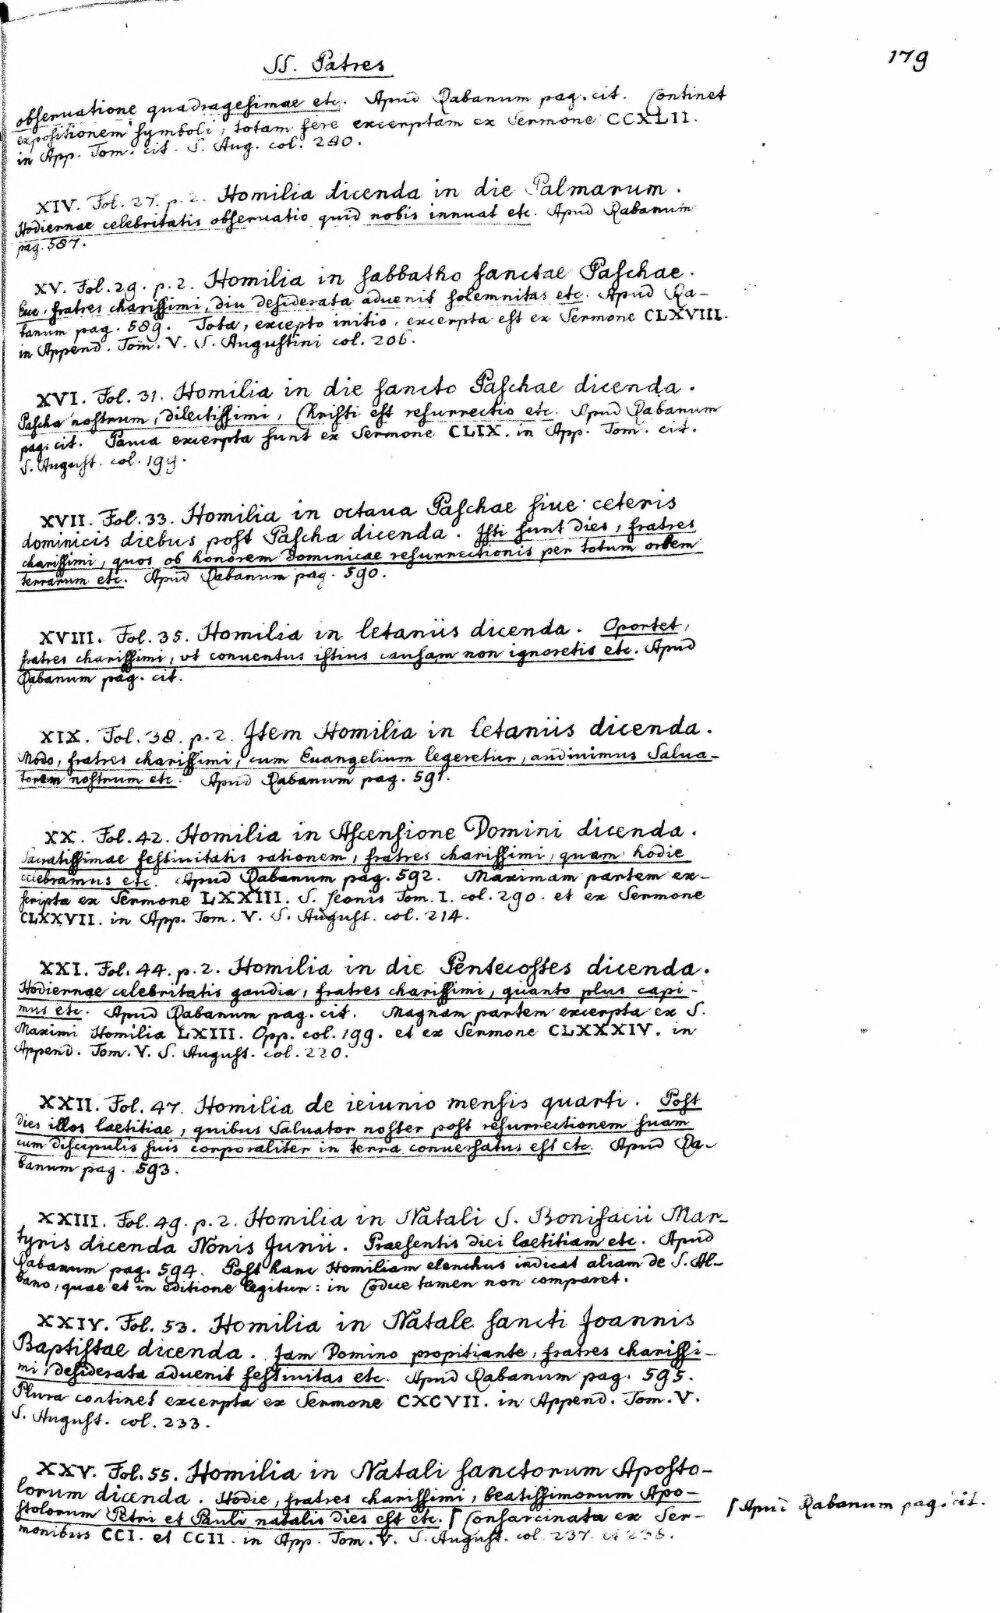 SS. Patres
179
obseruatione quadragesimae etc. Apud Rabanum pag. cit. Continet
expositionem symboli, totam fere excerptam ex Sermone CCXLII.
in App. Tom. cit. S. Aug. col. 280.
XIV. Fol. 27. p. 2. Homilia dicenda in die Palmarum.
Hodiernae celebritatis obseruatio quid nobis innuat etc. Apud Rabanum
pag. 587.
XV. Fol. 29. p. 2. Homilia in sabbatho sanctae Paschae.
Ecce, fratres charissimi, diu desiderata aduenit solemnitas etc. Apud Ra-
banum pag. 589. Tota, excepto initio, excerpta est ex Sermone CLXVIII.
in Append. Tom. V. S. Augustini col. 206.
XVI. Fol. 31. Homilia in die sancto Paschae dicenda.
Pascha nostrum, dilectissimi, Christi est resurrectio etc. Apud Rabanum
pag. cit. Pauca excerpta sunt ex Sermone CLIX. in App. Tom. cit.
S. August. col. 194.
XVII. Fol. 33. Homilia in octaua Paschae siue ceteris
dominicis diebus post Pascha dicenda. Isti sunt dies, fratres
charissimi, quos ob honorem Dominicae resurrectionis per totum orbem
terrarum etc. Apud Rabanum pag. 590.
XVIII. Fol. 35. Homilia in letaniis dicenda. Oportet,
fratres charissimi, vt conuentus istius causam non ignoretis etc. Apud
Rabanum pag. cit.
XIX. Fol. 38. p. 2. Item Homilia in letaniis dicenda.
Modo, fratres charissimi, cum Euangelium legeretur, audiuimus Salua-
torem nostrum etc. Apud Rabanum pag. 591.
XX. Fol. 42. Homilia in Ascensione Domini dicenda.
Sacratissimae festiuitatis rationem, fratres charissimi, quam hodie
celebramus etc. Apud Rabanum pag. 592. Maximam partem ex-
scripta ex Sermone LXXIII. S. Leonis Tom. I. col. 290. et ex Sermone
CLXXVII. in App. Tom. V. S. August. col. 214.
XXI. Fol. 44. p. 2. Homilia in die Pentecostes dicenda.
Hodiernae celebritatis gaudia, fratres charissimi, quanto plus capi-
mus etc. Apud Rabanum pag. cit. Magnam partem excerpta ex S.
Maximi Homilia LXIII. Opp. col. 199. et ex Sermone CLXXXIV. in
Append. Tom. V. S. August. col. 220.
XXII. Fol. 47. Homilia de ieiunio mensis quarti. Post
dies illos laetitiae, quibus Saluator noster post resurrectionem suam
cum discipulis suis corporaliter in terra conuersatus est etc. Apud Ra-
banum pag. 593.
XXIII. Fol. 49. p. 2. Homilia in Natali S. Bonifacii Mar-
tyris dicenda Nonis Junii. Praesentis diei laetitiam etc. Apud
Rabanum pag. 594. Post hanc Homiliam elenchus indicat aliam de S. Al-
bano, quae et in editione legitur: in Codice tamen non comparet.
XXIV. Fol. 53. Homilia in Natale sancti Joannis
Baptistae dicenda. Jam Domino propitiante, fratres charissi-
mi, desiderata aduenit festiuitas etc. Apud Rabanum pag. 595.
Plura continet excerpta ex Sermone CXCVII. in Append. Tom. V.
S. August. col. 233.
XXV. Fol. 55. Homilia in Natali sanctorum Aposto-
lorum dicenda. Hodie, fratres charissimi, beatissimorum Apo-
stolorum Petri et Pauli natalis dies est etc. ⌈ Consarcinata ex Ser-
⌈ Apud Rabanum pag. cit.
monibus CCI. et CCII. in App. Tom. V. S. August. col. 237. et 238.